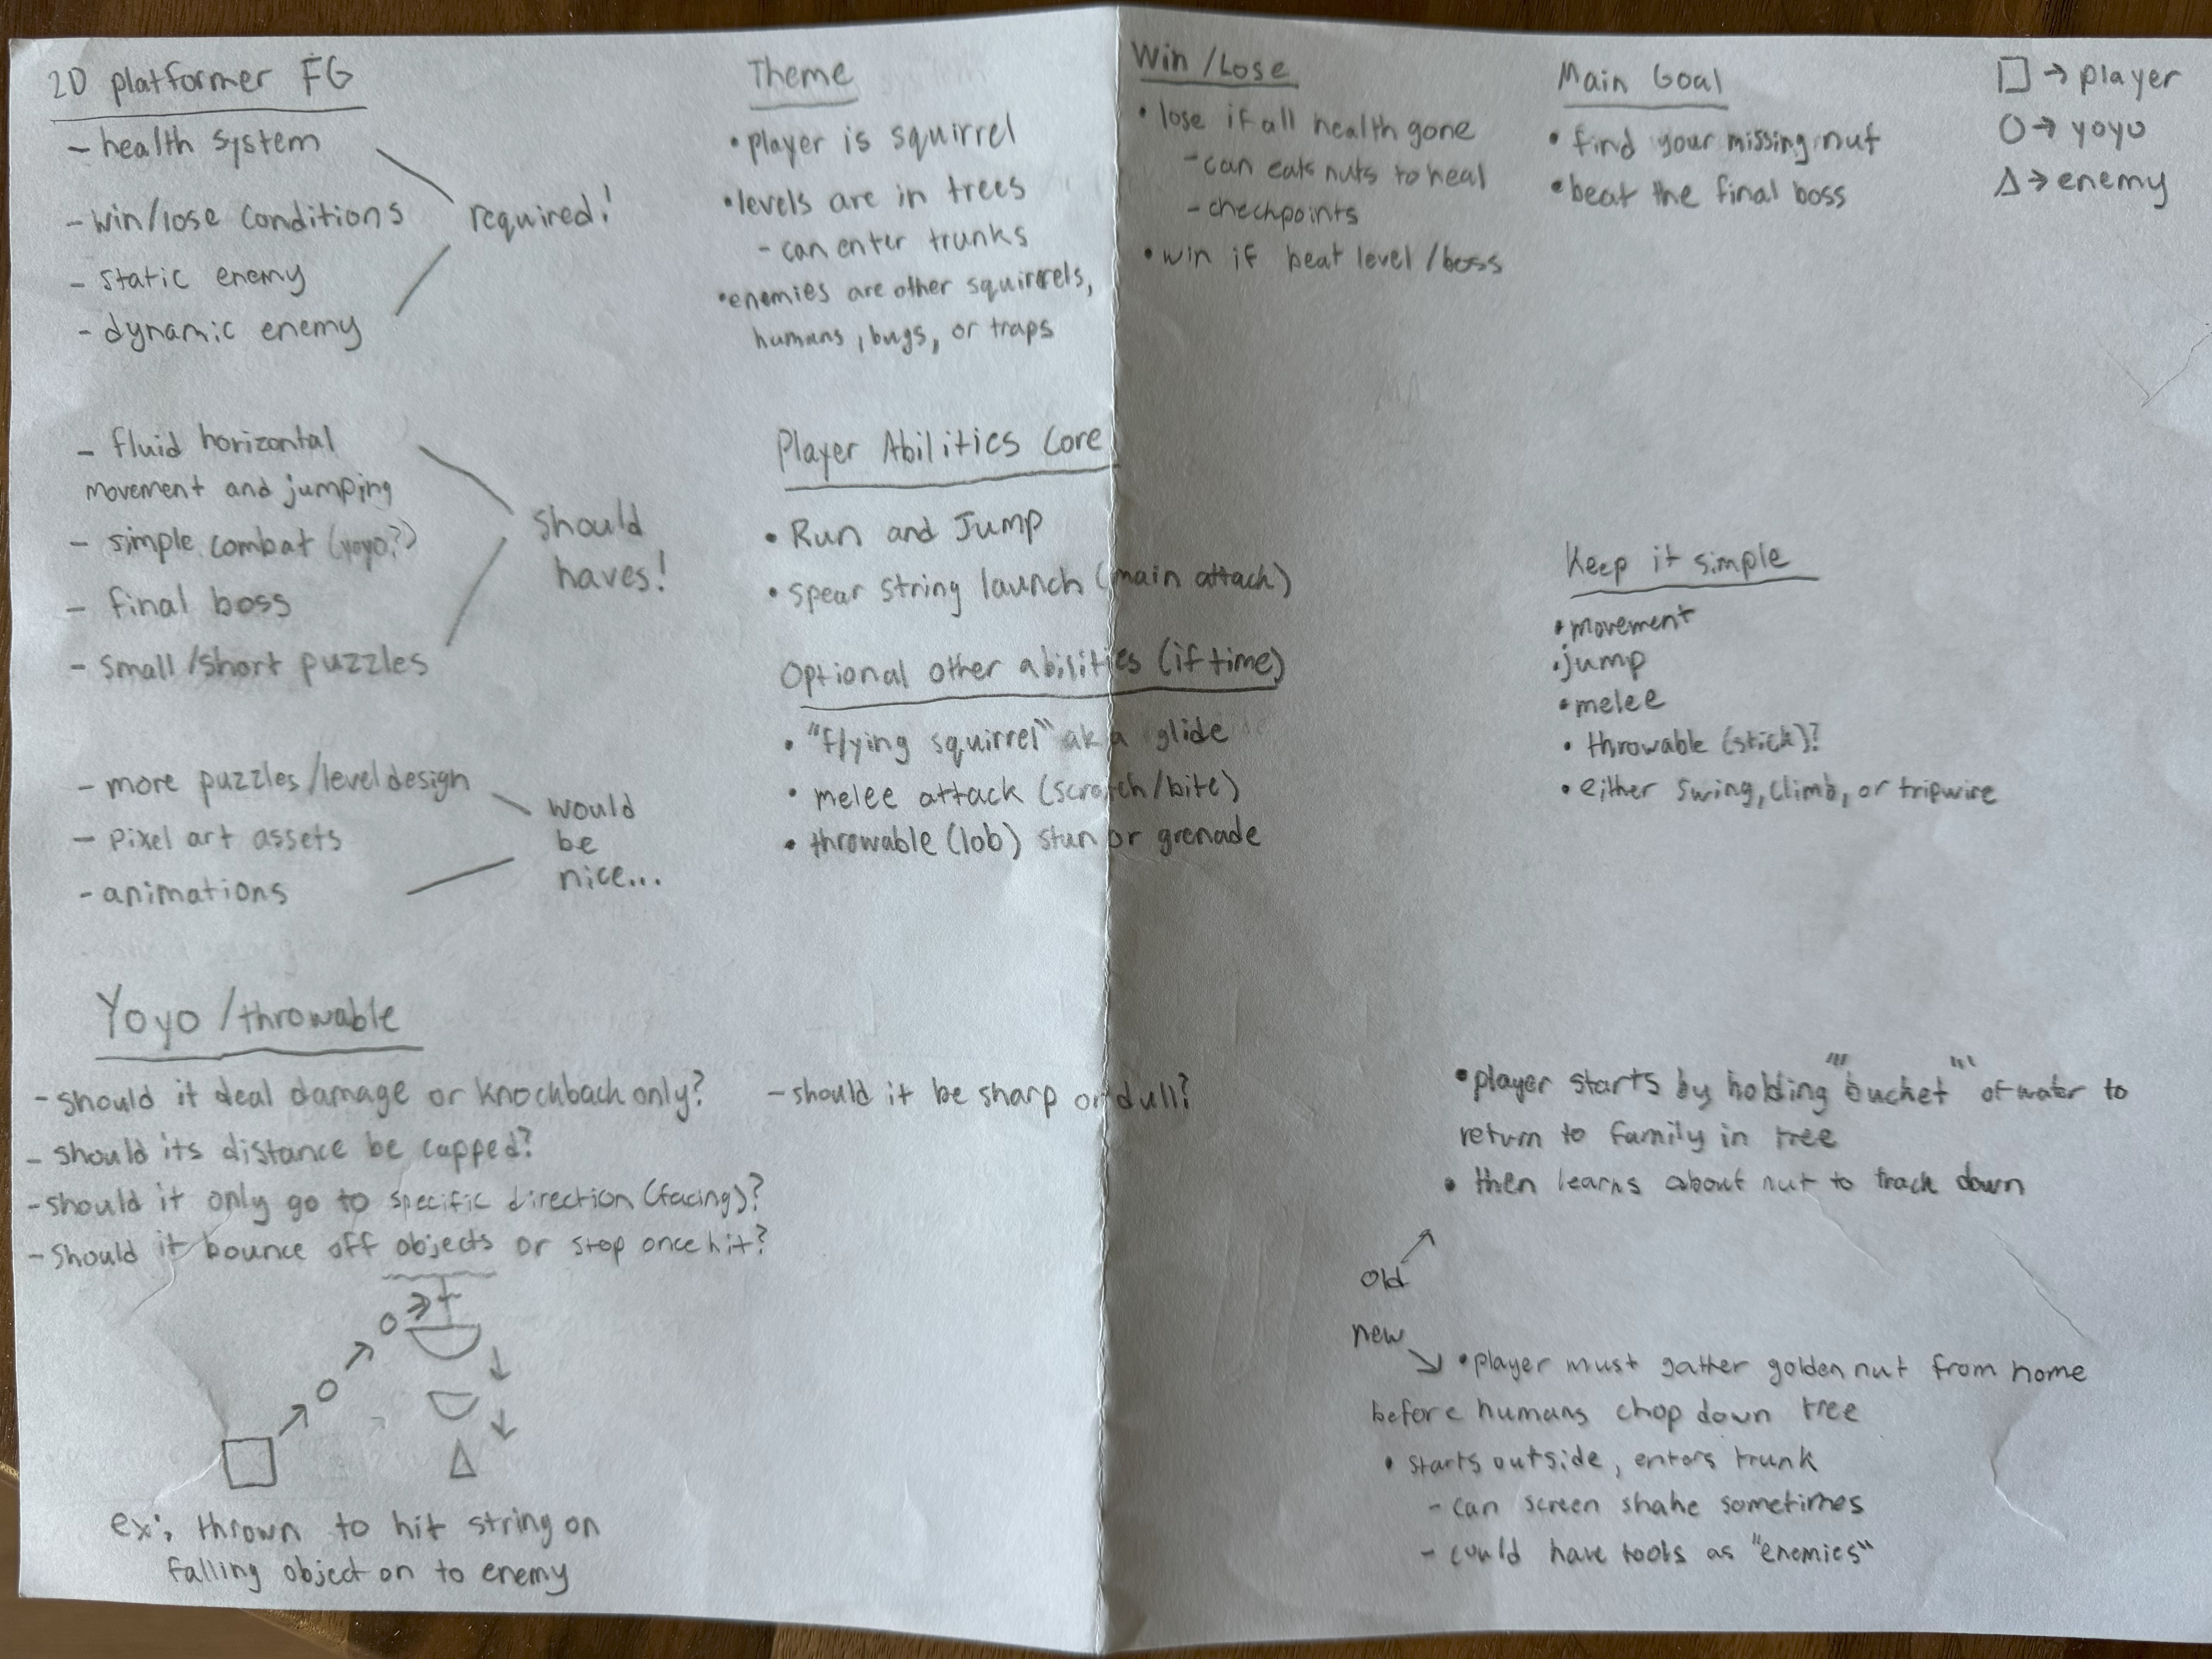 2D platformer FG
- health system
- win/lose conditions
- static enemy
- dynamic enemy
required!
- fluid horizontal
movement and jumping
- simple combat (yoyo?)
- final boss
- small/short puzzles
should
haves!
- more puzzles/level design
- pixel art assets
- animations
would
be
nice...
Theme
• player is squirrel
• levels are in trees
- can enter trunks
• enemies are other squirrels,
humans, bugs, or traps
Win/Lose
• lose if all health gone
- can eats nuts to heal
- checkpoints
• win if beat level/boss
Main Goal
• find your missing nut
• beat the final boss
□ → player
○ → yoyo
△ → enemy
Player Abilities Core
• Run and Jump
• spear string launch (main attack)
Optional other abilities (if time)
• "flying squirrel" aka glide
• melee attack (scratch/bite)
• throwable (lob) stun or grenade
Keep it simple
• movement
• jump
• melee
• throwable (stick)?
• either swing, climb, or tripwire
Yoyo/throwable
- should it deal damage or knockback only?
- should its distance be capped?
- should it only go to specific direction (facing)?
- should it bounce off objects or stop once hit?
- should it be sharp or dull?
ex: thrown to hit string on
falling object on to enemy
• player starts by holding "bucket" of water to
return to family in tree
• then learns about nut to track down
old
new
• player must gatter golden nut from home
before humans chop down tree
• starts outside, enters trunk
- can screen shake sometimes
- could have tools as "enemies"